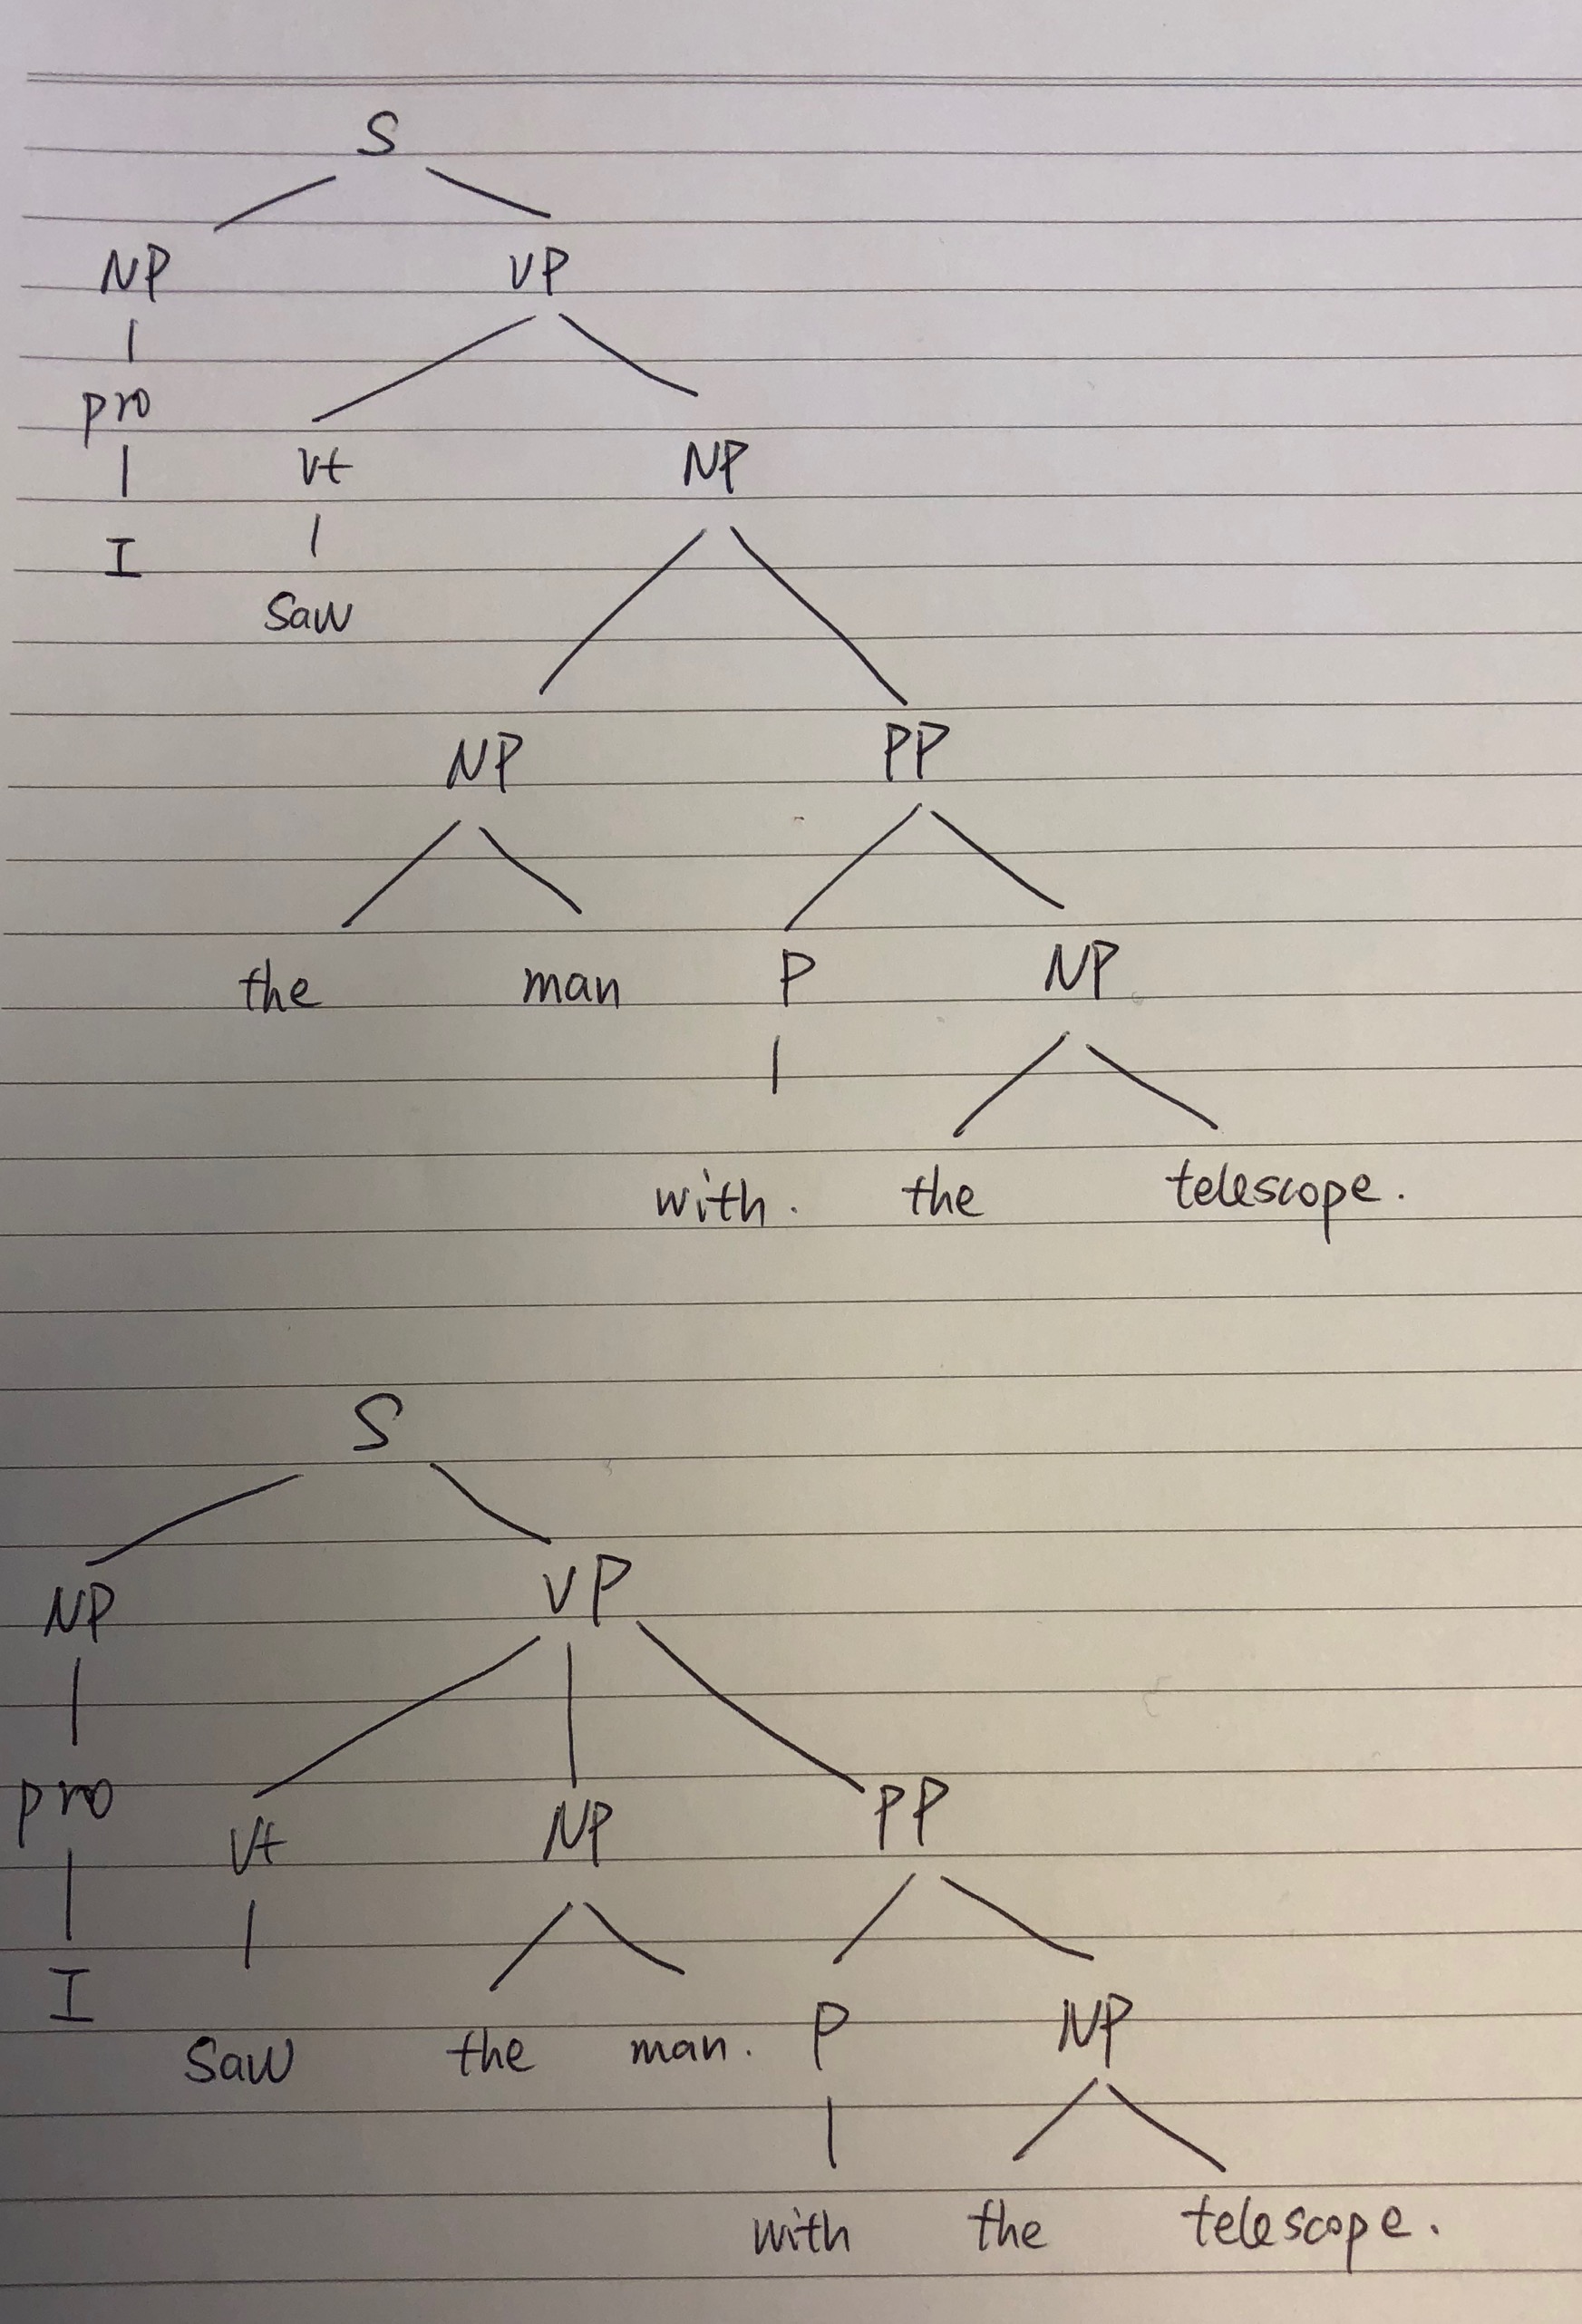 S
NP VP
pro
Vt NP
I
Saw
NP PP
the man P NP
with. the telescope.
S
NP VP
pro Vt NP PP
I
Saw the man. P NP
with the telescope.